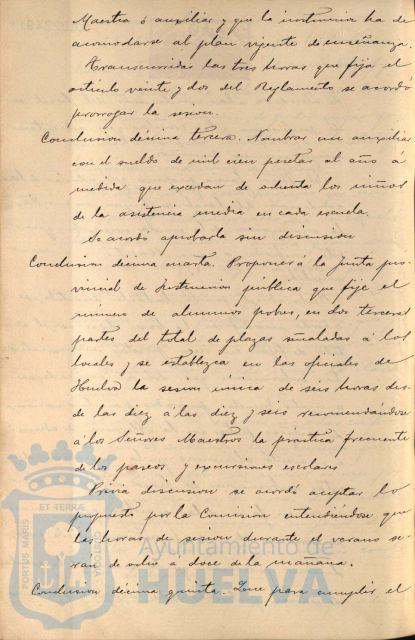 Maestra ó auxiliar y que la instrucción ha de
acomodarse al plan vigente de enseñanza.
Transcurridas las tres horas que fija el
artículo veinte y dos del Reglamento se acordó
prorrogar la sesion.
Conclusion décima tercera. Nombrar un auxiliar
con el sueldo de mil cien pesetas al año á
medida que excedan de ochenta los niños
de la asistencia media en cada escuela.
Se acordó aprobarla sin discusion
Conclusion décima cuarta. Proponer á la Junta pro-
vincial de Instruccion pública que fije el
número de alumnos pobres, en dos terceras
partes del total de plazas señaladas á los
locales y se establezca en las oficiales de
Huelva la sesion única de seis horas des-
de las diez á las diez y seis recomendándose
á los Señores Maestros la práctica frecuente
de los paseos y excursiones escolares
Prévia discusion se acordó aceptar lo
propuesto por la Comision entendiéndose que
las horas de sesion durante el verano se-
rán de ocho a doce de la mañana.
Conclusion décima quinta. Que para cumplir el
PORTUS MARIS ET TERRAE
Ayuntamiento de
HUELVA